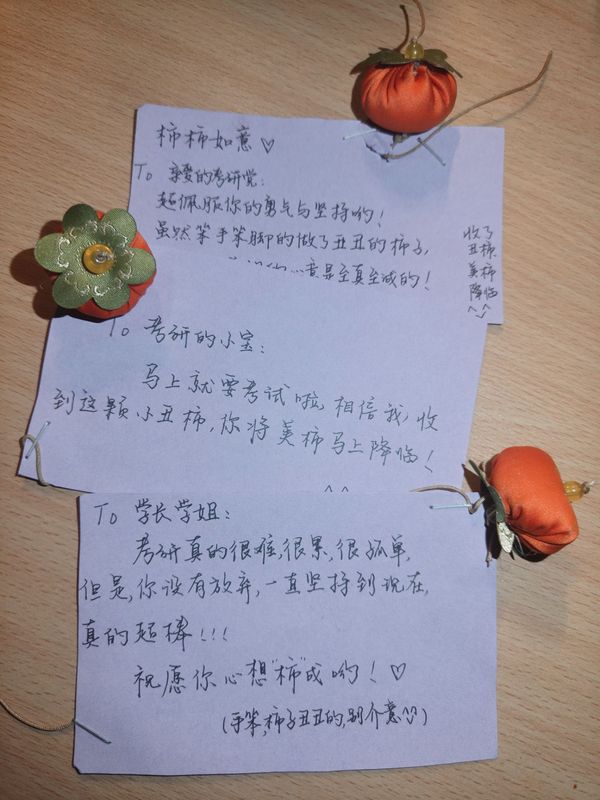 柿柿如意♡
To 亲爱的考研党:
超佩服你的勇气与坚持哟!
虽然笨手笨脚的做了丑丑的柿子,
意是至真至诚的!
收了
丑柿
美柿
降临
^^
To 考研的小宝:
马上就要考试啦,相信我,收
到这颗小丑柿,你将美柿马上降临!
^^
To 学长学姐:
考研真的很难,很累,很孤单,
但是,你没有放弃,一直坚持到现在,
真的超棒!!!
祝愿你心想“柿”成哟!♡
(手笨,柿子丑丑的,别介意^^)